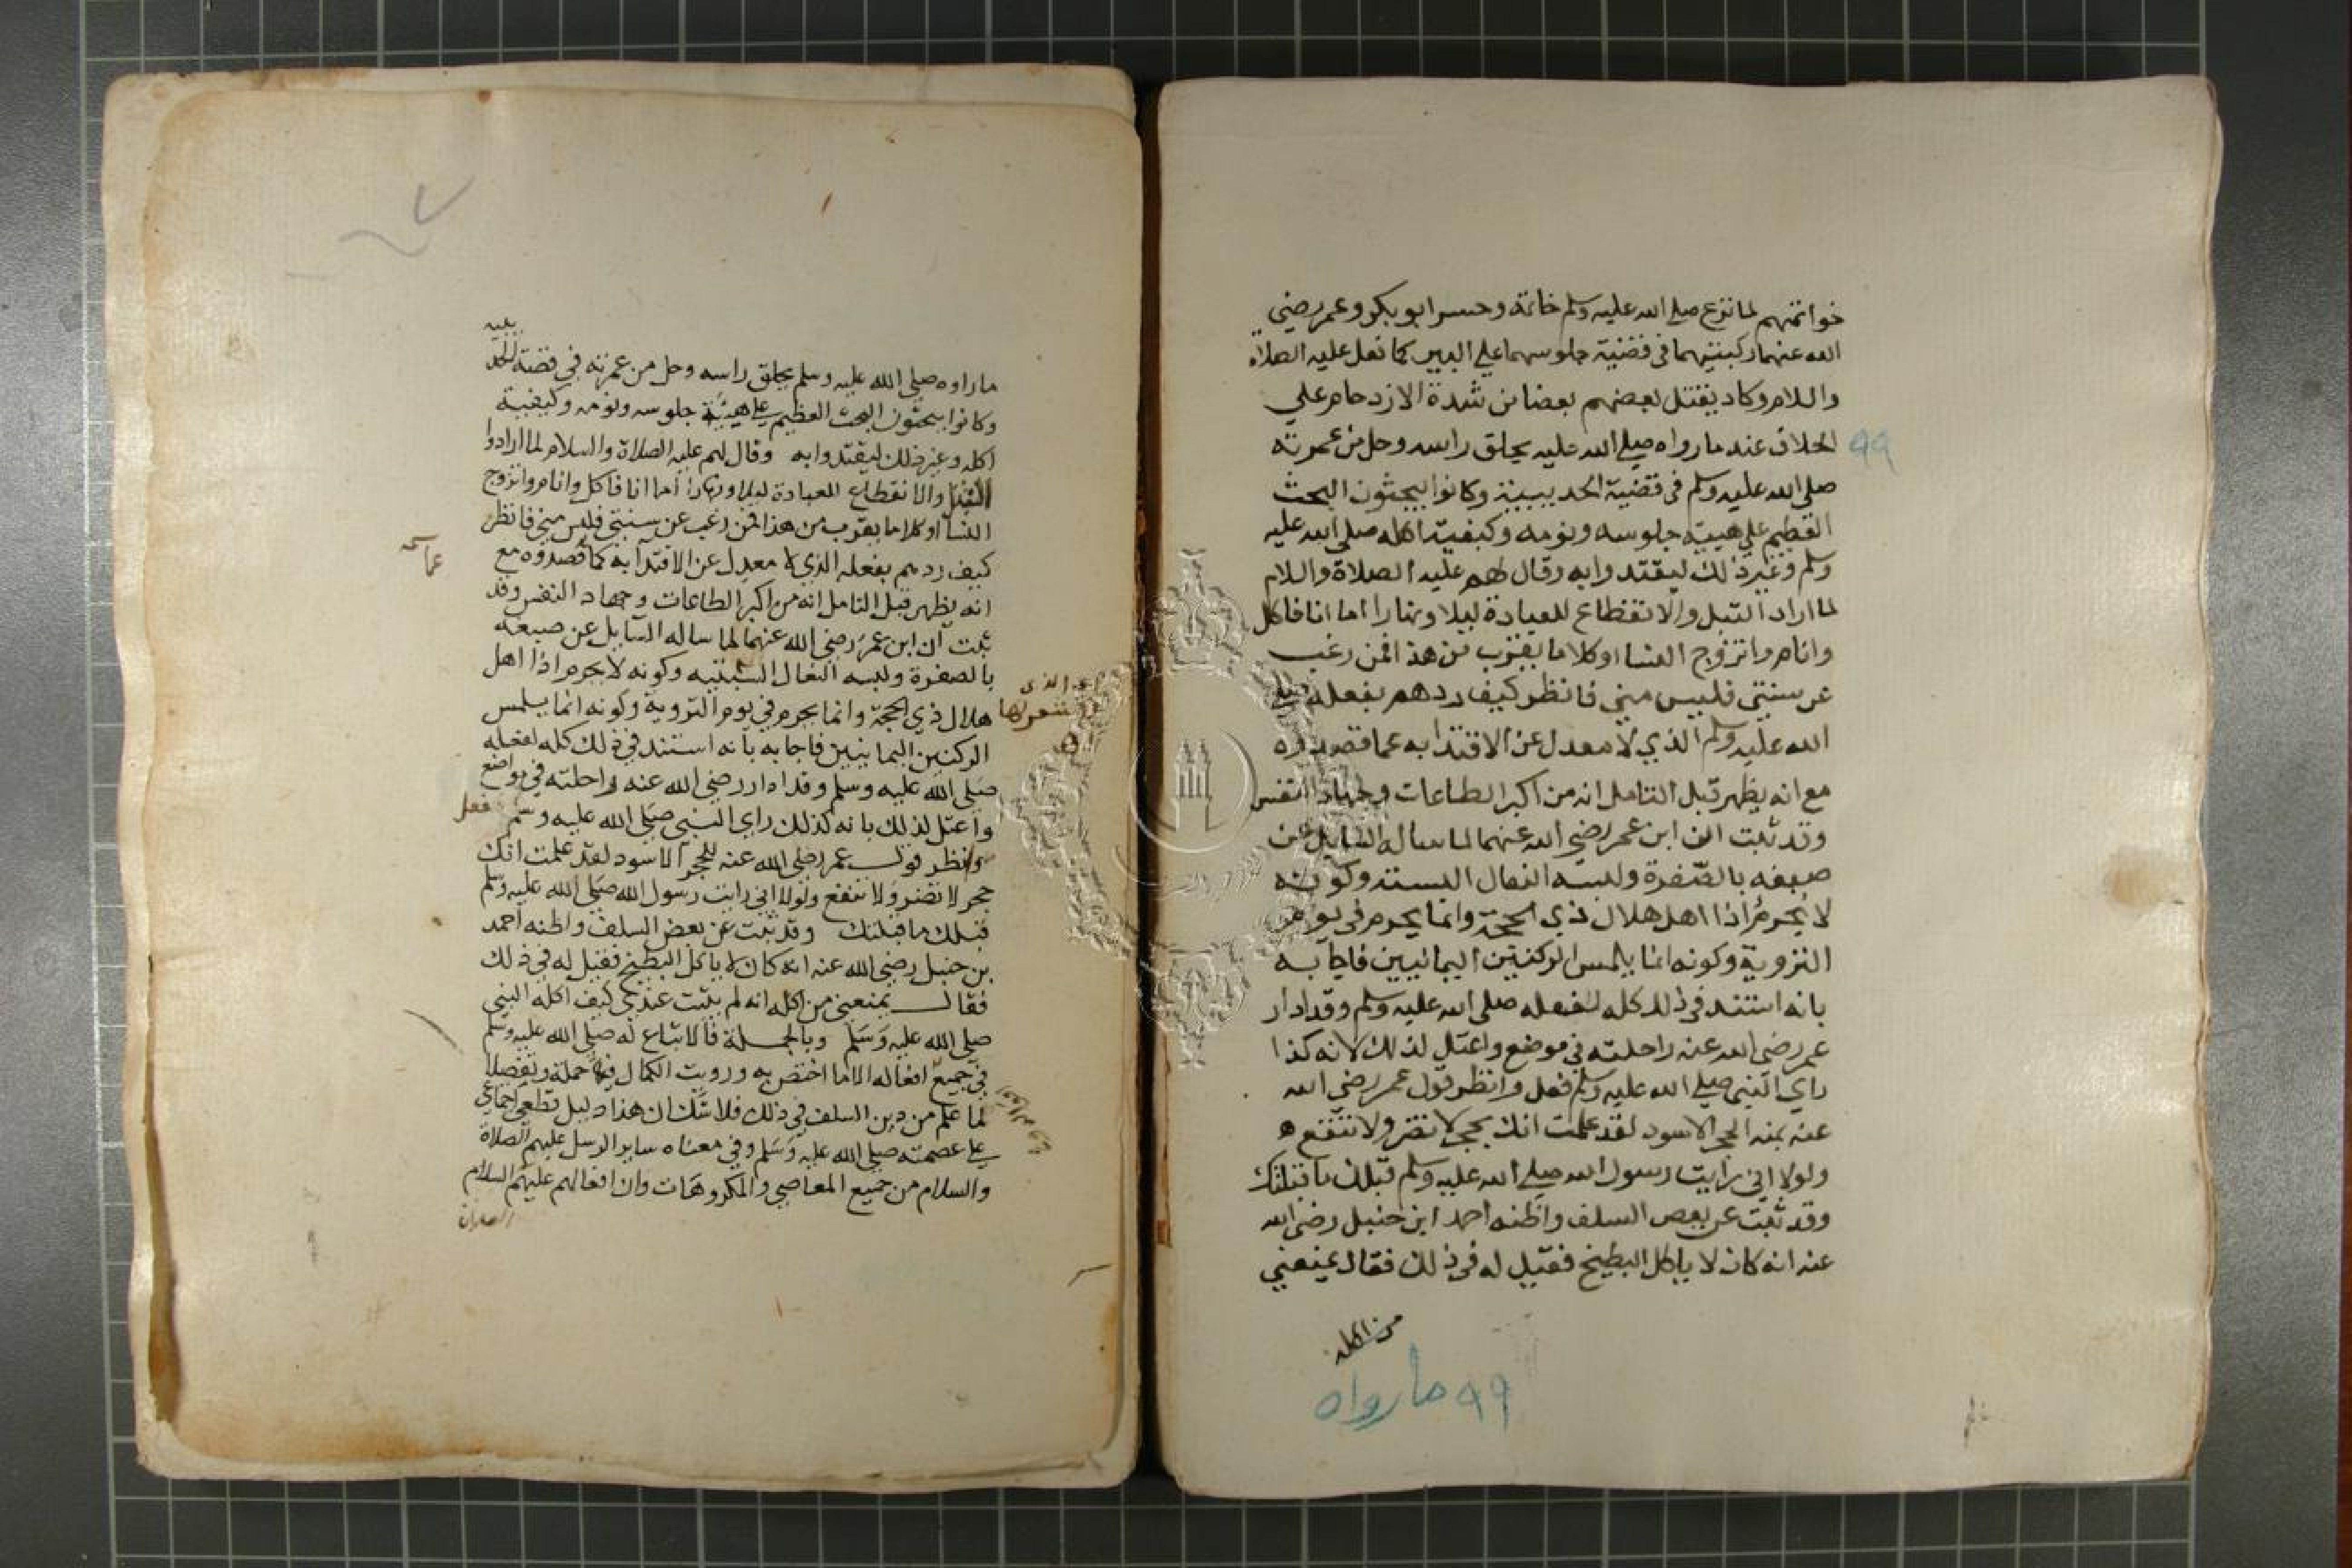 خواتمهم لما نزع صلي الله عليه وسلم خاتمه وحسر ابو بكر وعمر رضي
الله عنهما ركبتيهما في قضية جلوسهما علي البير كما فعل عليه الصلاة
والسلام وكاد يقتل بعضهم بعضا من شدة الازدحام علي
الحلاق عند ما رواه صلي الله عليه يحلق راسه وحل من عمرته
99
صلي الله عليه وسلم في قضية الحديبية وكانوا يبحثون البحث
العظيم علي هيية جلوسه ونومه وكيفية اكله صلي الله عليه
وسلم وغير ذلك ليقتدوا به وقال لهم عليه الصلاة والسلام
لما اراد التبتل والانقطاع للعبادة ليلا ونهارا اما انا فاكل
وانام واتزوج النسا او كلاما يقرب من هذا فمن رغب
عن سنتي فليس مني فانظر كيف ردهم بفعله صلي
الله عليه وسلم الذي لا معدل عن الاقتدا به عما قصدوه
مع انه يظهر قبل التامل انه من اكبر الطاعات وجهاد النفس
وقد ثبت ان ابن عمر رضي الله عنهما لما ساله السايل عن
صبغه بالصفرة ولبسه النعال السبتيه وكونه
لا يحرم اذا اهل هلال ذي الحجة وانما يحرم في يوم
التروية وكونه انما يلمس الركنين اليمانيين فاجابه
بانه استند في ذلك كله لفعله صلي الله عليه وسلم وقد ادار
عمر رضي الله عنه راحلته في موضع واعتل لذلك لانه كذا
راي النبي صلي الله عليه وسلم فعل وانظر قول عمر رضي الله
عنه الحجر الاسود لقد علمت انك حجر لا تضر ولا تنفع
ولولا اني رايت رسول الله صلي الله عليه وسلم قبلك ما قبلتك
وقد ثبت عن بعض السلف واظنه احمد ابن حنبل رضي الله
عنه انه كان لا ياكل البطيخ فقيل له في ذلك فقال يمنعني
من اكله
99 ما رواه
بيية
ما راوه صلي الله عليه وسلم يحلق راسه وحل من عمرته في قضة الحد
وكانوا يبحثون البحث العظيم علي هيئة جلوسه ونومه وكيفية
اكله وغير ذلك ليقتدوا به وقال لهم عليه الصلاة والسلام لما ارادوا
التبتل والانقطاع للعبادة ليلا ونهارا أما انا فاكل وانام واتزوج
النسا او كلاما يقرب من هذا فمن رغب عن سنتي فليس مني فانظر
كيف ردهم بفعله الذي لا معدل عن الاقتدا به كما قصدوه مع
عما
انه يظهر قبل التامل انه من اكبر الطاعات وجهاد النفس وقد
ثبت ان ابن عمر رضي الله عنهما لما ساله السايل عن صبغه
بالصفرة ولبسه النعال السبتيه وكونه لا يحرم اذا اهل
الذي
هلال ذي الحجة وانما يحرم في يوم التروية وكونه انما يلمس
الركنين اليمانيين فاجابه بانه استند في ذلك كله لفعله
صلي الله عليه وسلم وقد ادار رضي الله عنه راحلته في مواضع
واعتل لذلك بانه كذلك راي النبي صلي الله عليه وسلم
فعل
وانظر قول عمر رضي الله عنه للحجر الاسود لقد علمت انك
حجر لا تضر ولا تنفع ولولا اني رايت رسول الله صلي الله عليه وسلم
قبلك ما قبلتك وقد ثبت عن بعض السلف واظنه احمد
بن حنبل رضي الله عنه انه كان لا ياكل البطيخ فقيل له في ذلك
فقال يمنعني من اكله انه لم يثبت عندي كيف اكله النبي
صلي الله عليه وسلم وبالجملة فالاتباع له صلي الله عليه وسلم
في جميع افعاله الا ما اختص به ورويت الكمال فيها جملة وتفصيلا
لما علم من دين السلف في ذلك فلا شك ان هذا دليل قطعي اجماعي
علي عصمته صلي الله عليه وسلم وفي معناه ساير الرسل عليهم الصلاة
والسلام من جميع المعاصي والمكروهات وان افعالهم عليهم السلام